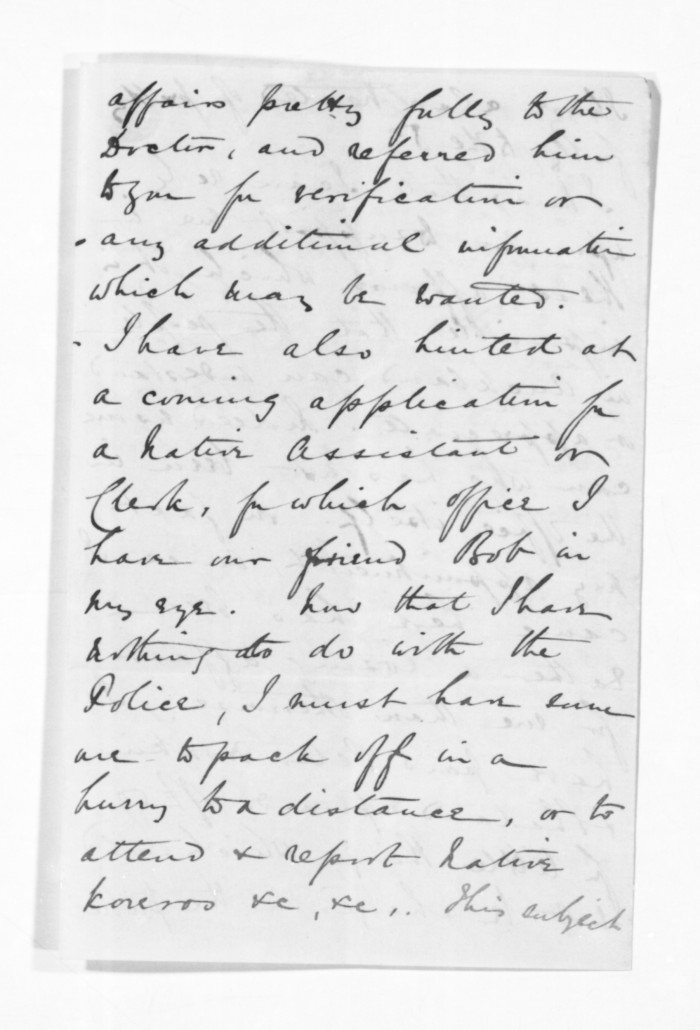 affairs pretty fully to the
Doctor, and referred him
to you for verification or
any additional information
which may be wanted.
I have also hinted at
a coming application for
a Native Assistant or
Clerk, for which office I
have our friend Bob in
my eye. Now that I have
nothing to do with the
Police, I must have some
one to pack off in a
hurry to a distance, or to
attend & report Native
koreros &c, &c,. This subject